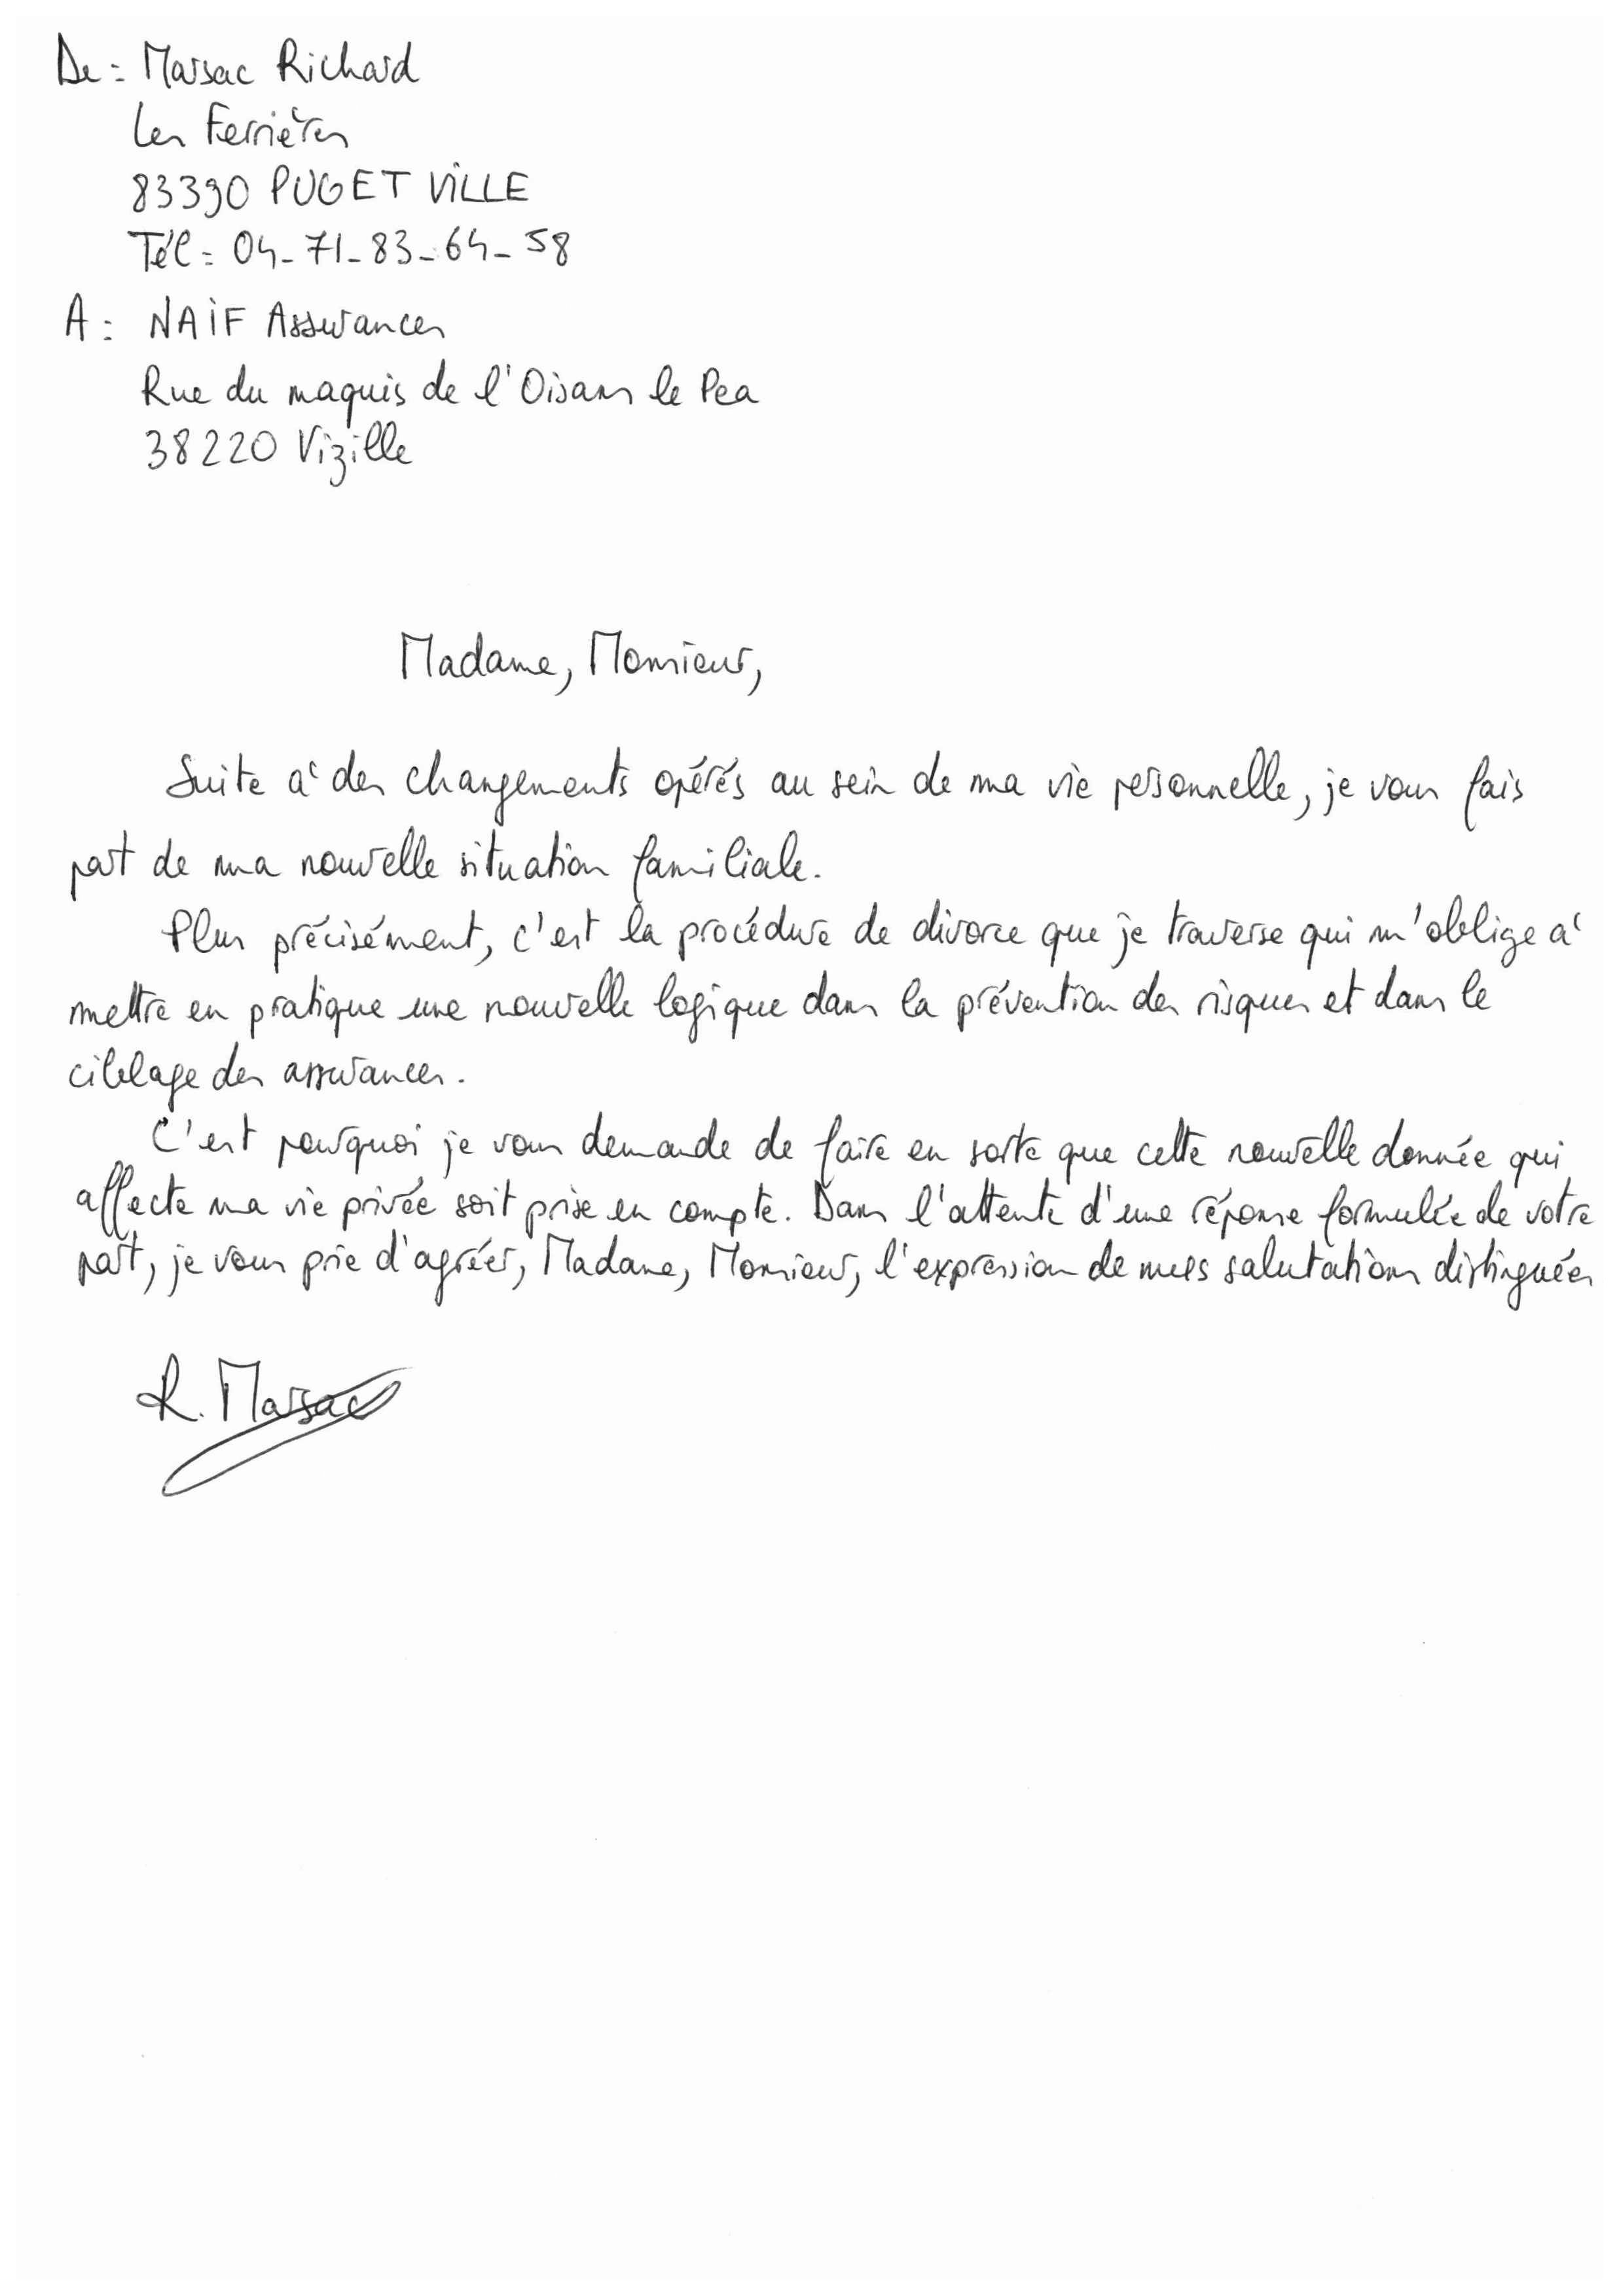 De : Marsac Richard
Les Ferrières
83390 PUGET VILLE
Tél : 04-71-83-64-58
A : NAIF Assurances
Rue du maquis de l'Oisans le Pea
38220 Vizille
Madame, Monsieur,
Suite à des changements opérés au sein de ma vie personnelle, je vous fais
part de ma nouvelle situation familiale.
Plus précisément, c'est la procédure de divorce que je traverse qui m'oblige à
mettre en pratique une nouvelle logique dans la prévention des risques et dans le
ciblage des assurances.
C'est pourquoi je vous demande de faire en sorte que cette nouvelle donnée qui
affecte ma vie privée soit prise en compte. Dans l'attente d'une réponse formulée de votre
part, je vous prie d'agréer, Madame, Monsieur, l'expression de mes salutations distinguées
R. Marsac